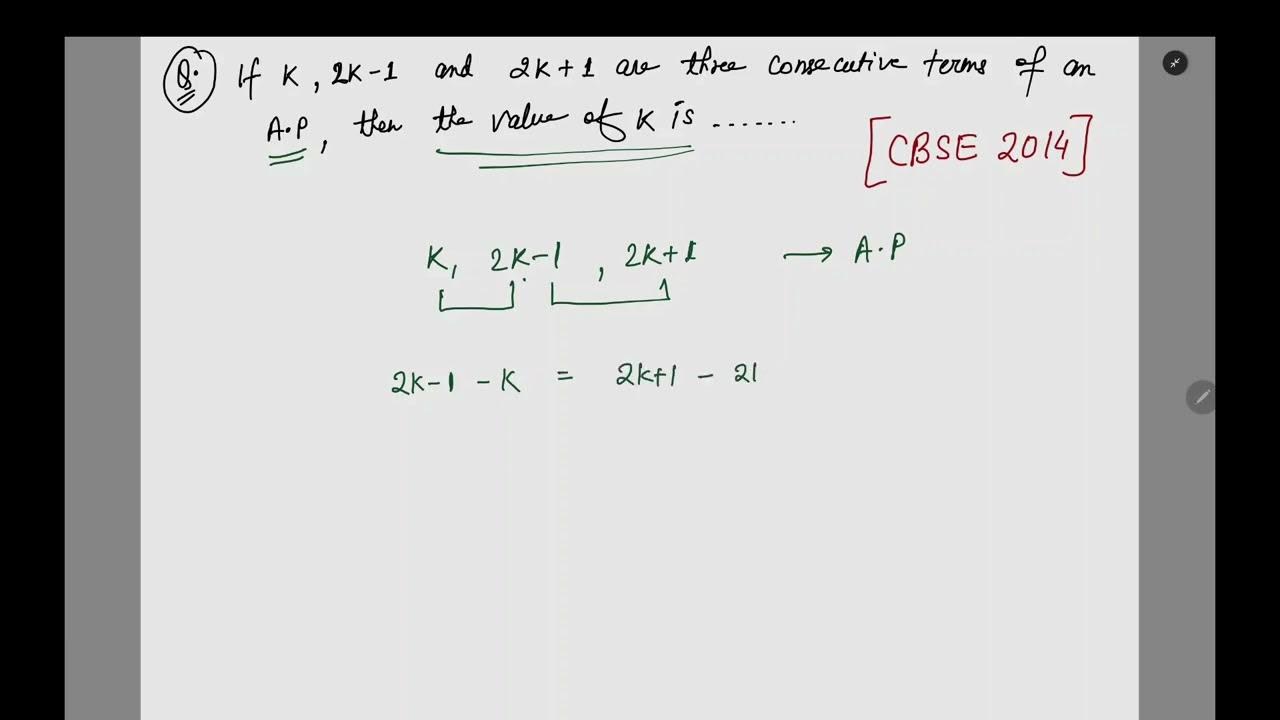 Q. If K, 2K-1 and 2K+1 are three consecutive terms of an
A.P, then the value of K is .......
[CBSE 2014]
K, 2K-1, 2K+1 → A.P
2K-1 - K = 2K+1 - 2l